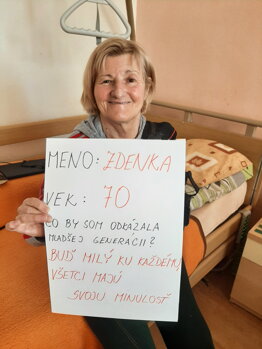 MENO: ZDENKA
VEK: 70
ČO BY SOM ODKÁZALA
MLADŠEJ GENERÁCII?
BUDÝ MILÝ KU KAŽDÉMU,
VŠETCI MAJÚ
SVOJU MINULOSŤ